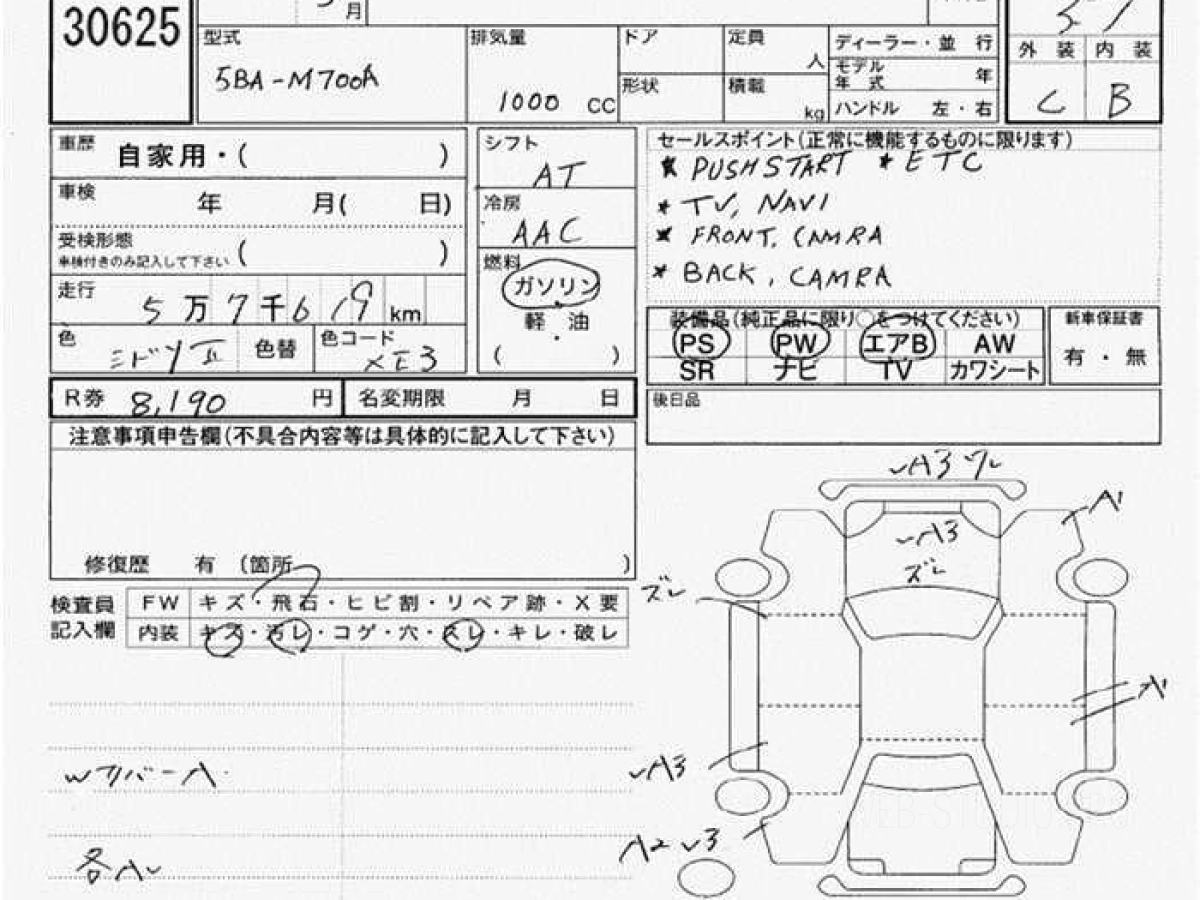 30625
月
型式 5BA-M700A
排気量 1000 CC
ドア
形状
定員 人
積載 kg
ディーラー・並 行
モデル年式 年
ハンドル 左・右
外 装 内 装
C B
車歴 自家用・( )
車検 年 月( 日)
受検形態 ( )
車検付きのみ記入して下さい
走行 5万7千619km
色 ミドリII 色替 色コード XE3
シフト AT
冷房 AAC
燃料 ガソリン
軽・油
( )
セールスポイント(正常に機能するものに限ります)
* PUSHSTART * ETC
* TV, NAVI
* FRONT, CAMRA
* BACK, CAMRA
装備品(純正品に限り○をつけてください)
PS PW エアB AW
SR ナビ TV カワシート
新車保証書
有・無
R券 8,190 円 名変期限 月 日
後日品
注意事項申告欄(不具合内容等は具体的に記入して下さい)
修復歴 有 (箇所 )
検査員記入欄
FW キズ・飛石・ヒビ割・リペア跡・X要
内装 キズ・汚レ・コゲ・穴・スレ・キレ・破レ
各A
A3 ワレ
A1
A3
ズレ
ズレ
A1
A3
A2